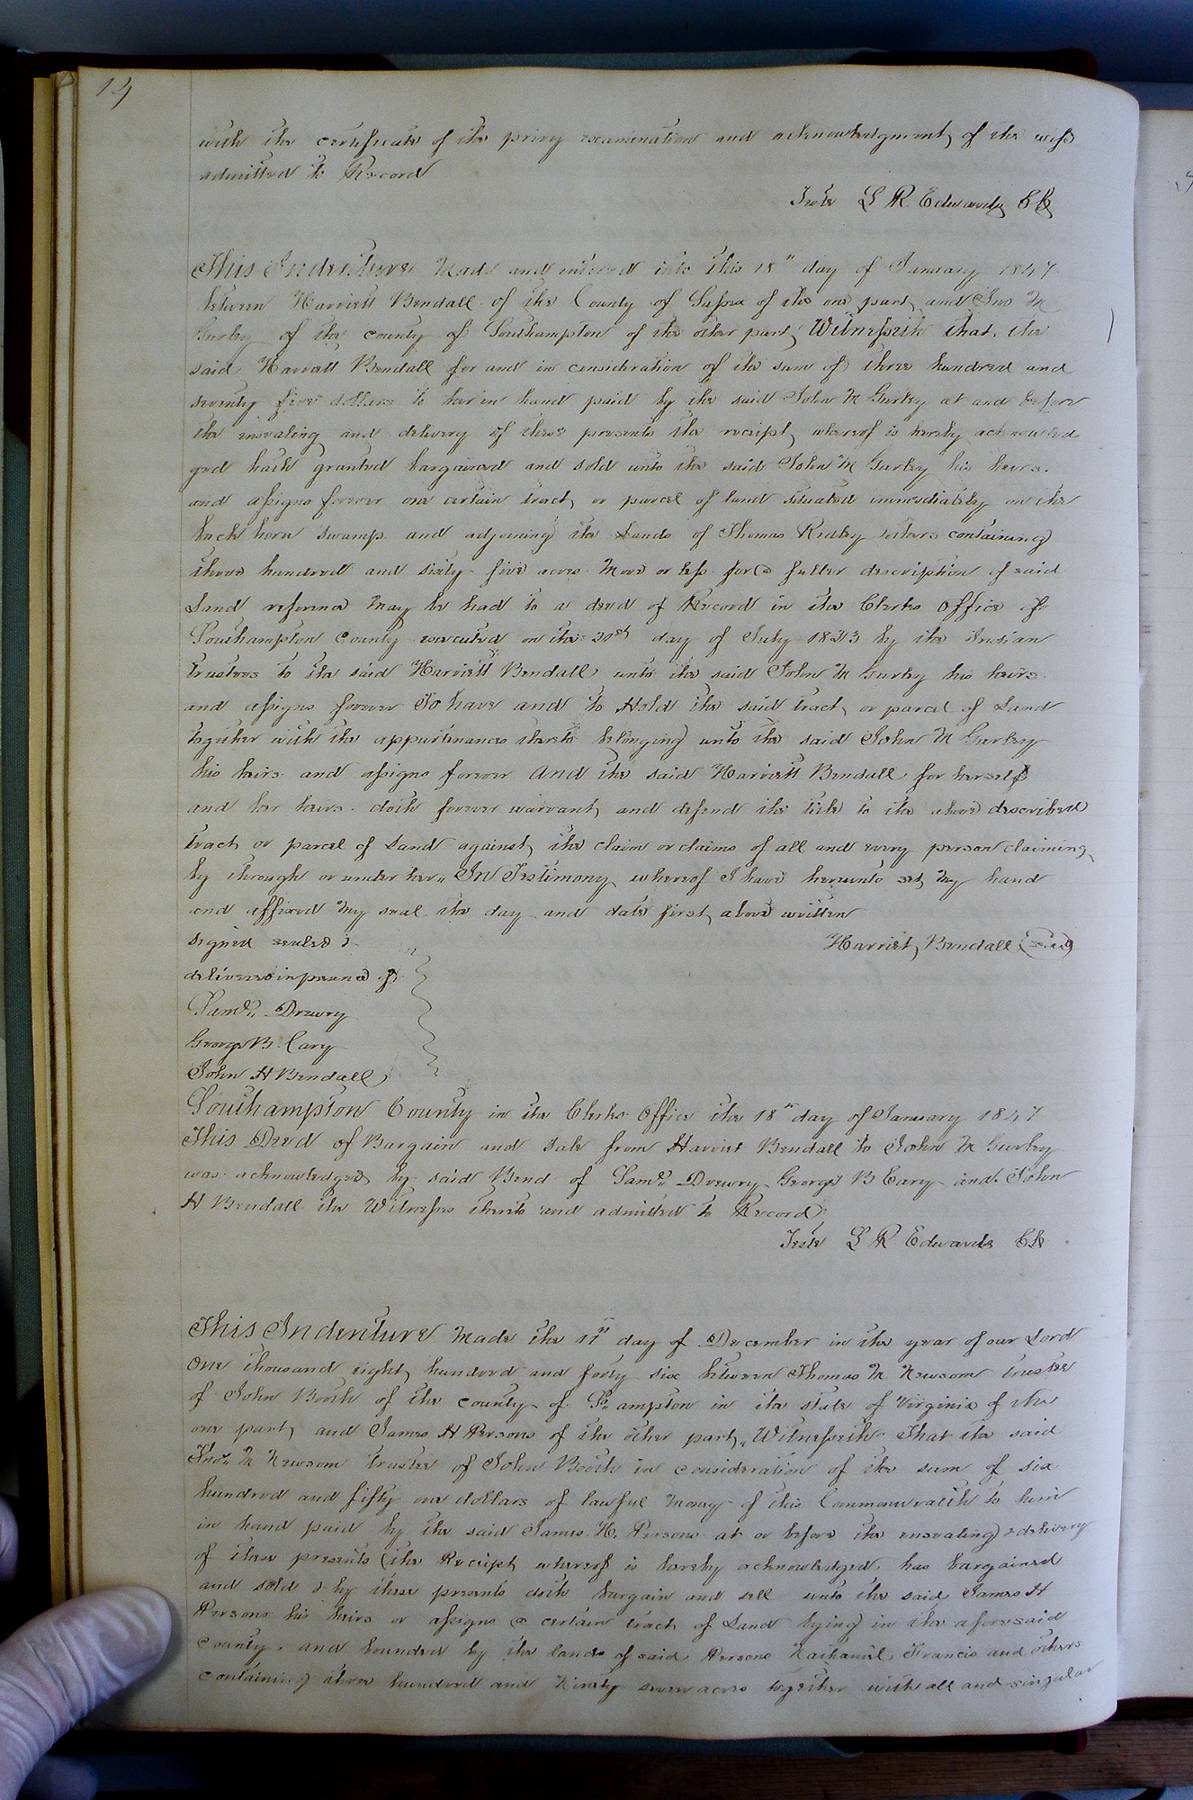 14
with the certificate of the privy examination and acknowledgment of the wife
admitted to Record
Teste L R Edwards Clk
This Indenture Made and entered into this 18th day of January 1847
between Harriett Bendall of the County of Sussex of the one part and Jno M
Gurley of the county of Southampton of the other part, Witnesseth that, the
said Harriett Bendall for and in consideration of the sum of three hundred and
seventy five dollars to her in hand paid by the said John M Gurley at and before
the ensealing and delivery of these presents the receipt whereof is hereby acknowled
ged hath granted bargained and sold unto the said John M Gurley his heirs
and assigns forever one certain tract, or parcel of land situated immediately on the
Buck horn swamp and adjoining the Lands of Thomas Ridley others containing
three hundred and sixty five acres More or less for a fuller description of said
Land reference May be had to a deed of Record in the Clerks office of
Southampton County executed on the 20th day of July 1843 by the Indian
trustees to the said Harriett Bendall unto the said John M Gurley his heirs
and assigns forever To have and to Hold the said tract, or parcel of Land
together with the appurtenances thereto belonging unto the said John M Gurley
his heirs and assigns forever And the said Harriett Bendall for herself
and her heirs doth forever warrant, and defend the title to the above described
tract or parcel of Land against, the claim or claims of all and every person claiming
by through or under her, In Testimony whereof I have hereunto set, My hand
and affixed My seal the day and date first, above written
signed sealed & Harriet, Bendall (seal)
delivered in presence of
Saml. Drewry
George B. Cary
John H Bendall
Southampton County in the Clerks Office the 18th day of January 1847
This Deed of Bargain and Sale from Harriet Bendall to John M Gurley
was acknowledged by said Bend of Saml. Drewry George B Cary and John
H Bendall the Witnesses thereto and admitted to Record
Teste L R Edwards Clk
This Indenture Made the 11th day of December in the year of our Lord
One thousand eight hundred and forty six between Thomas M Newsom trustee
of John Booth of the county of So ampton in the state of Virginia of the
one part, and James H Persons of the other part, Witnesseth That the said
Thos. M Newsom trustee of John Booth in consideration of the sum of six
hundred and fifty one dollars of lawful Money of this Commonwealth to him
in hand paid by the said James H. Persons at or before the ensealing & delivery
of these presents (the Receipt whereof is hereby acknowledged has bargained
and sold & by these presents doth bargain and sell unto the said James H
Persons his heirs or assigns a certain tract of Land lying in the aforesaid
county, and bounded by the lands of said Persons Nathaniel Francis and others
containing three hundred and Ninety seven acres together with all and singular